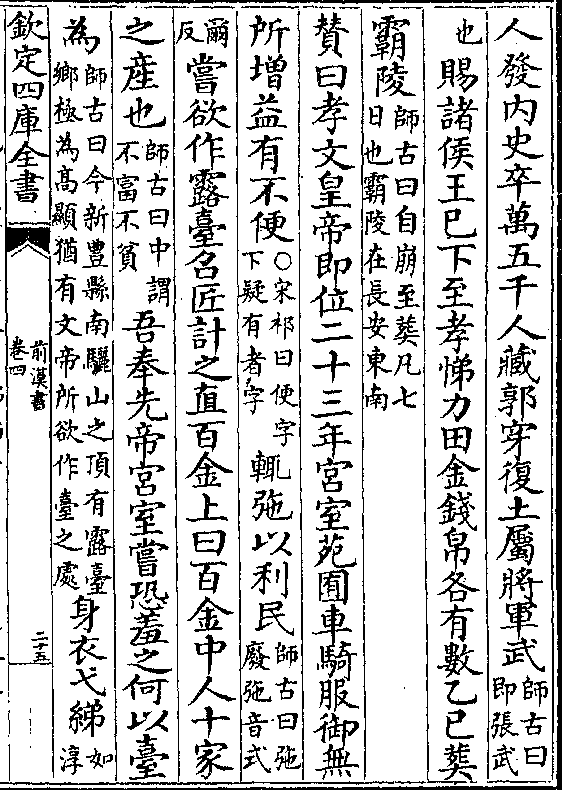 人發內史卒萬五千人藏郭穿復土屬將軍武師古曰即張武
也賜諸侯王已下至孝悌力田金錢帛各有數乙巳葬
霸陵師古曰自崩至葬凡七日也霸陵在長安東南
賛曰孝文皇帝即位二十三年宮室苑囿車騎服御無
所增益有不便○宋祁曰便字下疑有者字輒弛以利民師古曰弛廢弛音式
爾反嘗欲作露臺召匠計之直百金上曰百金中人十家
之産也師古曰中謂不富不貧吾奉先帝宮室嘗恐羞之何以臺
為師古曰今新豐縣南驪山之頂有露臺鄉極為髙顯猶有文帝所欲作臺之處身衣弋綈如淳
欽定四庫全書
前漢書
卷四
二十五